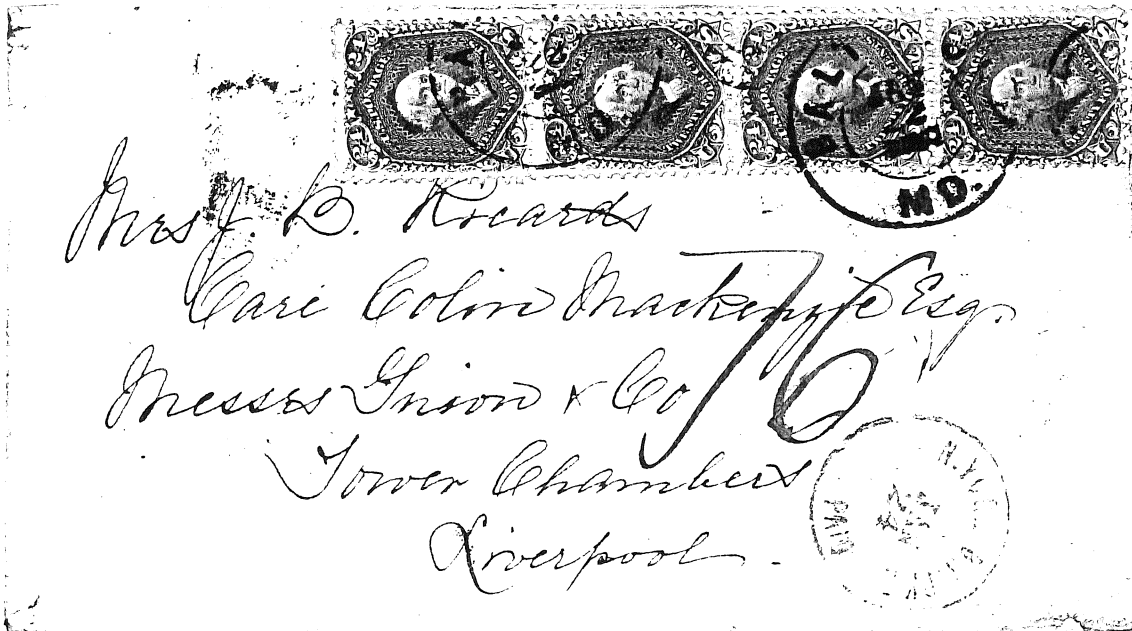 BALT
MD.
Mrs J. B. Ricards
Care Colin Mackenzie Esq.
76
Messrs Guion & Co
Tower Chambers
Liverpool.
N. YORK
PAID